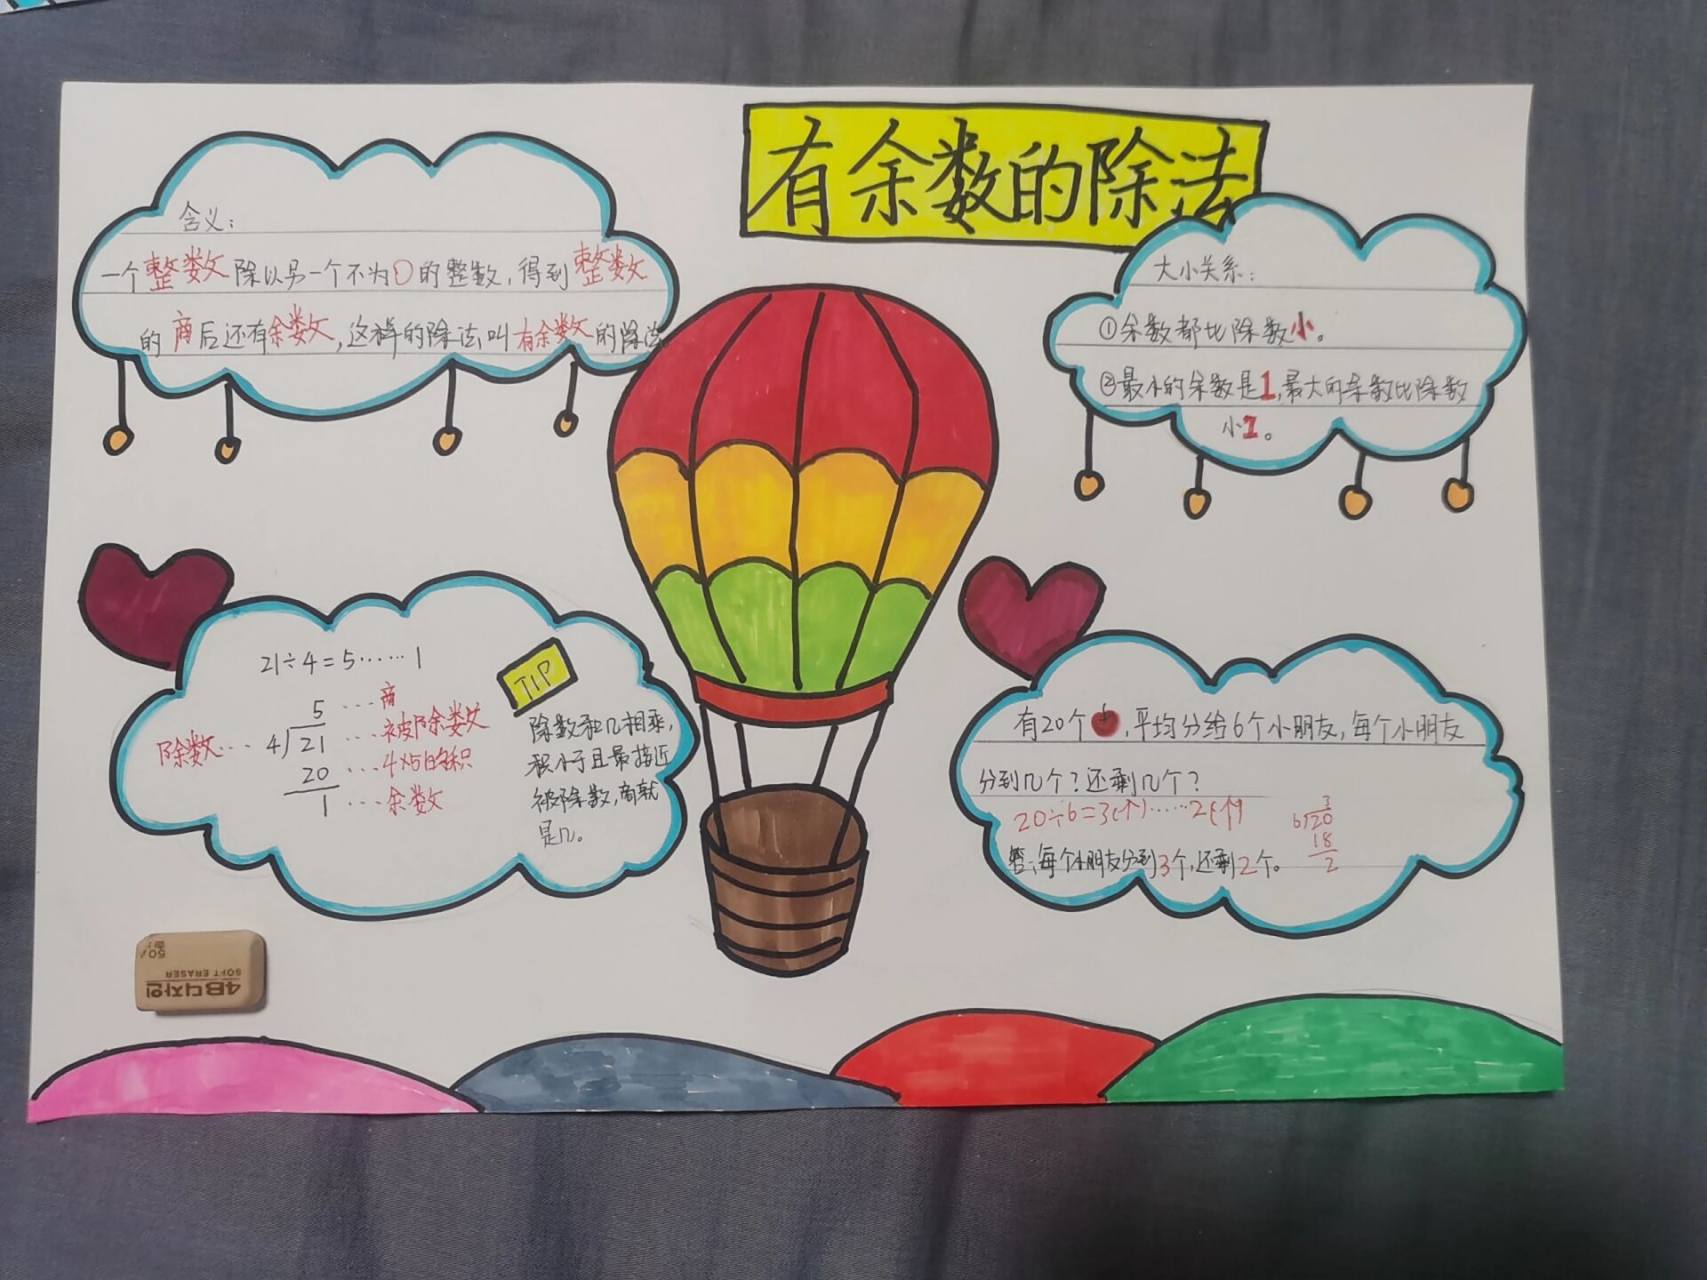 有余数的除法
含义:
一个整数除以另一个不为0的整数,得到整数
的商后还有余数,这样的除法叫有余数的除法
大小关系:
①余数都比除数小。
②最小的余数是1,最大的余数比除数
小1。
21÷4=5……1
5…商
除数…4 21…被除数
20…4×5的积
1…余数
TIP
除数和几相乘,
积小于且最接近
被除数,商就
是几。
有20个,平均分给6个小朋友,每个小朋友
分到几个?还剩几个?
20÷6=3(个)……2(个)
3
6 20
18
2
答:每个小朋友分到3个,还剩2个。
4B디자인
SOFT ERASER
50